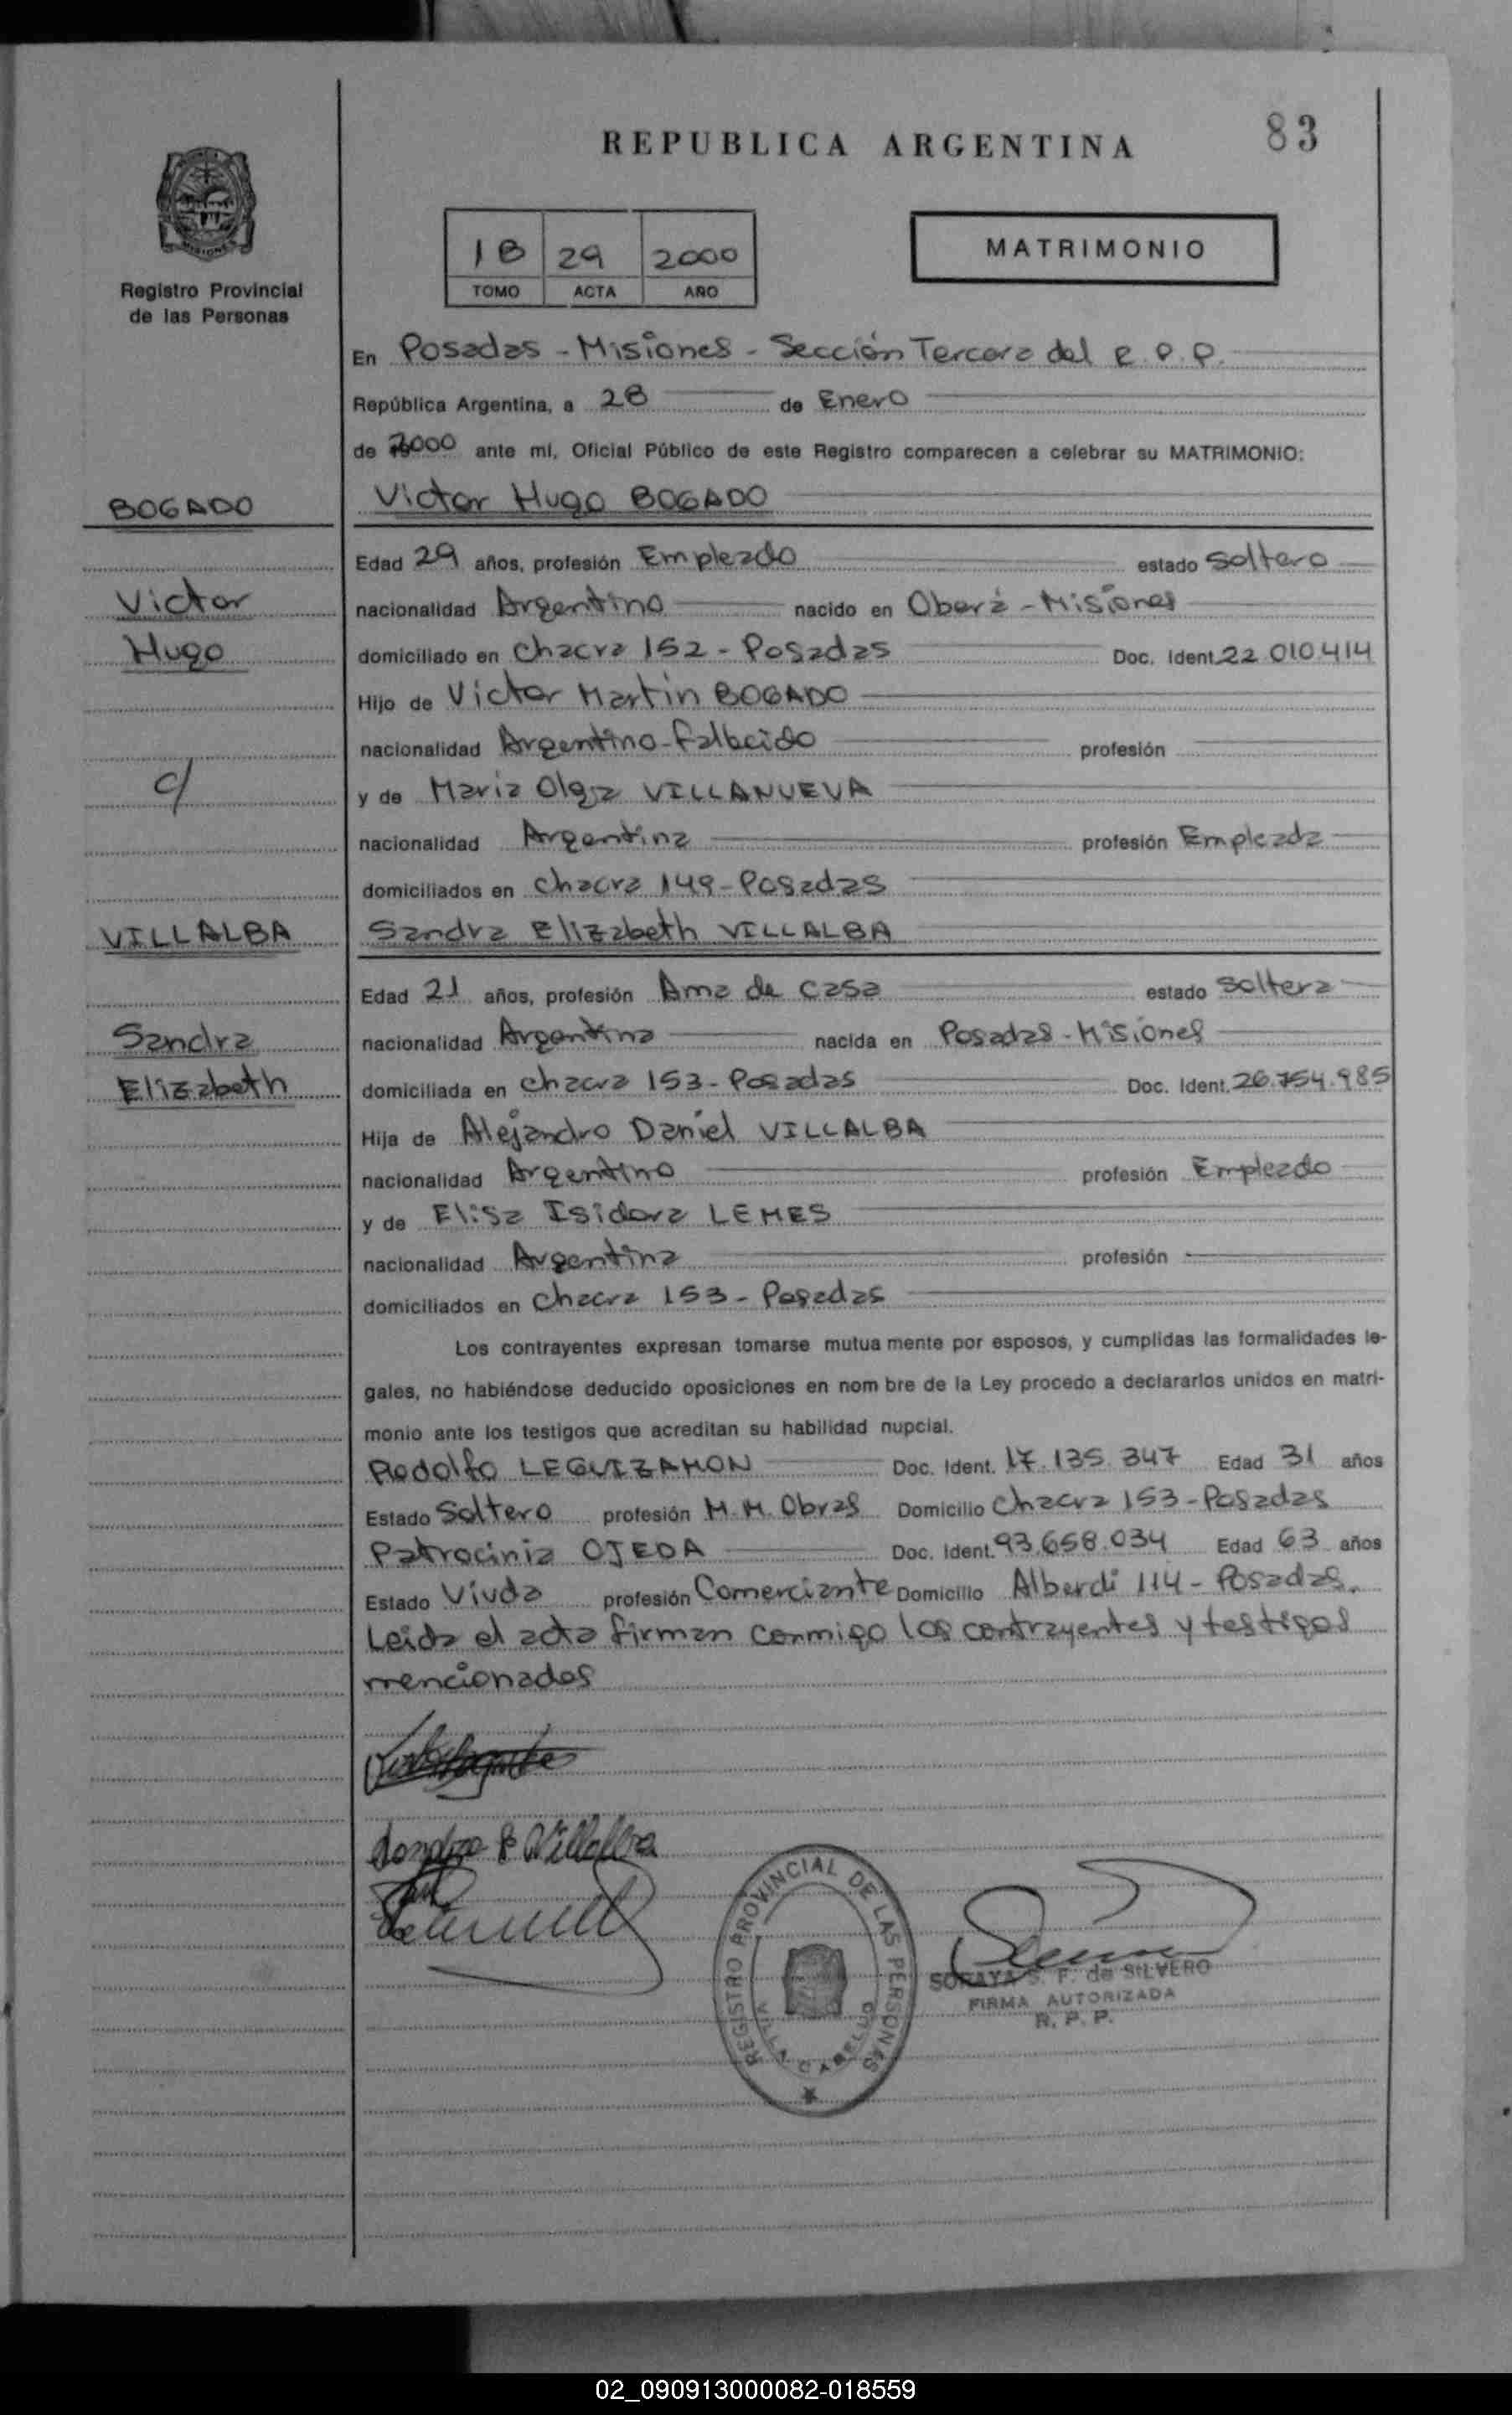 REPUBLICA ARGENTINA
83
Registro Provincial
de las Personas
1B 29 2000
TOMO ACTA AÑO
MATRIMONIO
En Posadas - Misiones - Sección Tercera del R.P.P.
República Argentina, a 28 de Enero
de 2000 ante mí, Oficial Público de este Registro comparecen a celebrar su MATRIMONIO:
BOGADO Victor Hugo BOGADO
Edad 29 años, profesión Empleado estado Soltero
Victor nacionalidad Argentino nacido en Oberá - Misiones
Hugo domiciliado en Chacra 152 - Posadas Doc. Ident. 22.010.414
Hijo de Victor Martin BOGADO
nacionalidad Argentino - fallecido profesión
c/ y de Maria Olga VILLANUEVA
nacionalidad Argentina profesión Empleada
domiciliados en Chacra 149 - Posadas
VILLALBA Sandra Elizabeth VILLALBA
Edad 21 años, profesión Ama de casa estado Soltera
Sandra nacionalidad Argentina nacida en Posadas - Misiones
Elizabeth domiciliada en Chacra 153 - Posadas Doc. Ident. 26.754.985
Hija de Alejandro Daniel VILLALBA
nacionalidad Argentino profesión Empleado
y de Elisa Isidora LEMES
nacionalidad Argentina profesión
domiciliados en Chacra 153 - Posadas
Los contrayentes expresan tomarse mutua mente por esposos, y cumplidas las formalidades le-
gales, no habiéndose deducido oposiciones en nom bre de la Ley procedo a declararlos unidos en matri-
monio ante los testigos que acreditan su habilidad nupcial.
Rodolfo LEGUIZAMON Doc. Ident. 17.135.347 Edad 31 años
Estado Soltero profesión M.M. Obras Domicilio Chacra 153 - Posadas
Patrocinia OJEDA Doc. Ident. 93.658.034 Edad 63 años
Estado Viuda profesión Comerciante Domicilio Alberdi 114 - Posadas.
Leida el acta firman conmigo los contrayentes y testigos
mencionados
Sandra E Villalba
REGISTRO PROVINCIAL DE LAS PERSONAS
VILLA CABELLO
SORAYA S. F. de SILVERO
FIRMA AUTORIZADA
R. P. P.
02_090913000082-018559